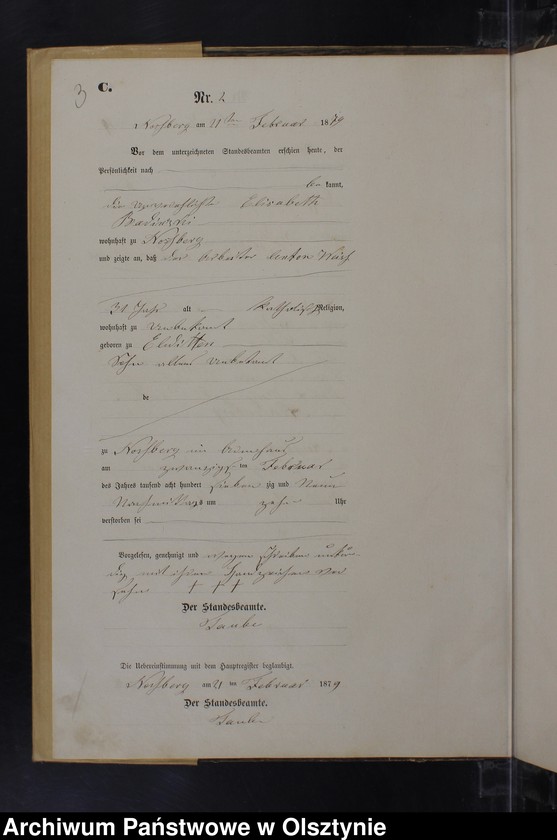 3 C.
Nr. 2
am 21ten Februar 1879
Vor dem unterzeichneten Standesbeamten erschien heute, der
Persönlichkeit nach
be kannt,
die verwehlichte Elisabeth
wohnhaft zu
und zeigte an, daß der Arbeiter Anton
31 Jahr alt katholisch Religion,
wohnhaft zu unbekannt
geboren zu Elditten
Sohn unbekant
de
zu im Armenhaus
am zwanzigsten Februar
des Jahres tausend acht hundert sieben zig und Neun
Nachmittags um zehn Uhr
verstorben sei
Vorgelesen, genehmigt und wegen Schreibens unkun-
dig mit ihrem Handzeichen ver
sehn + + +
Der Standesbeamte.
Taube
Die Uebereinstimmung mit dem Hauptregister beglaubigt.
am 21 ten Februar 1879
Der Standesbeamte.
Taube
Archiwum Państwowe w Olsztynie